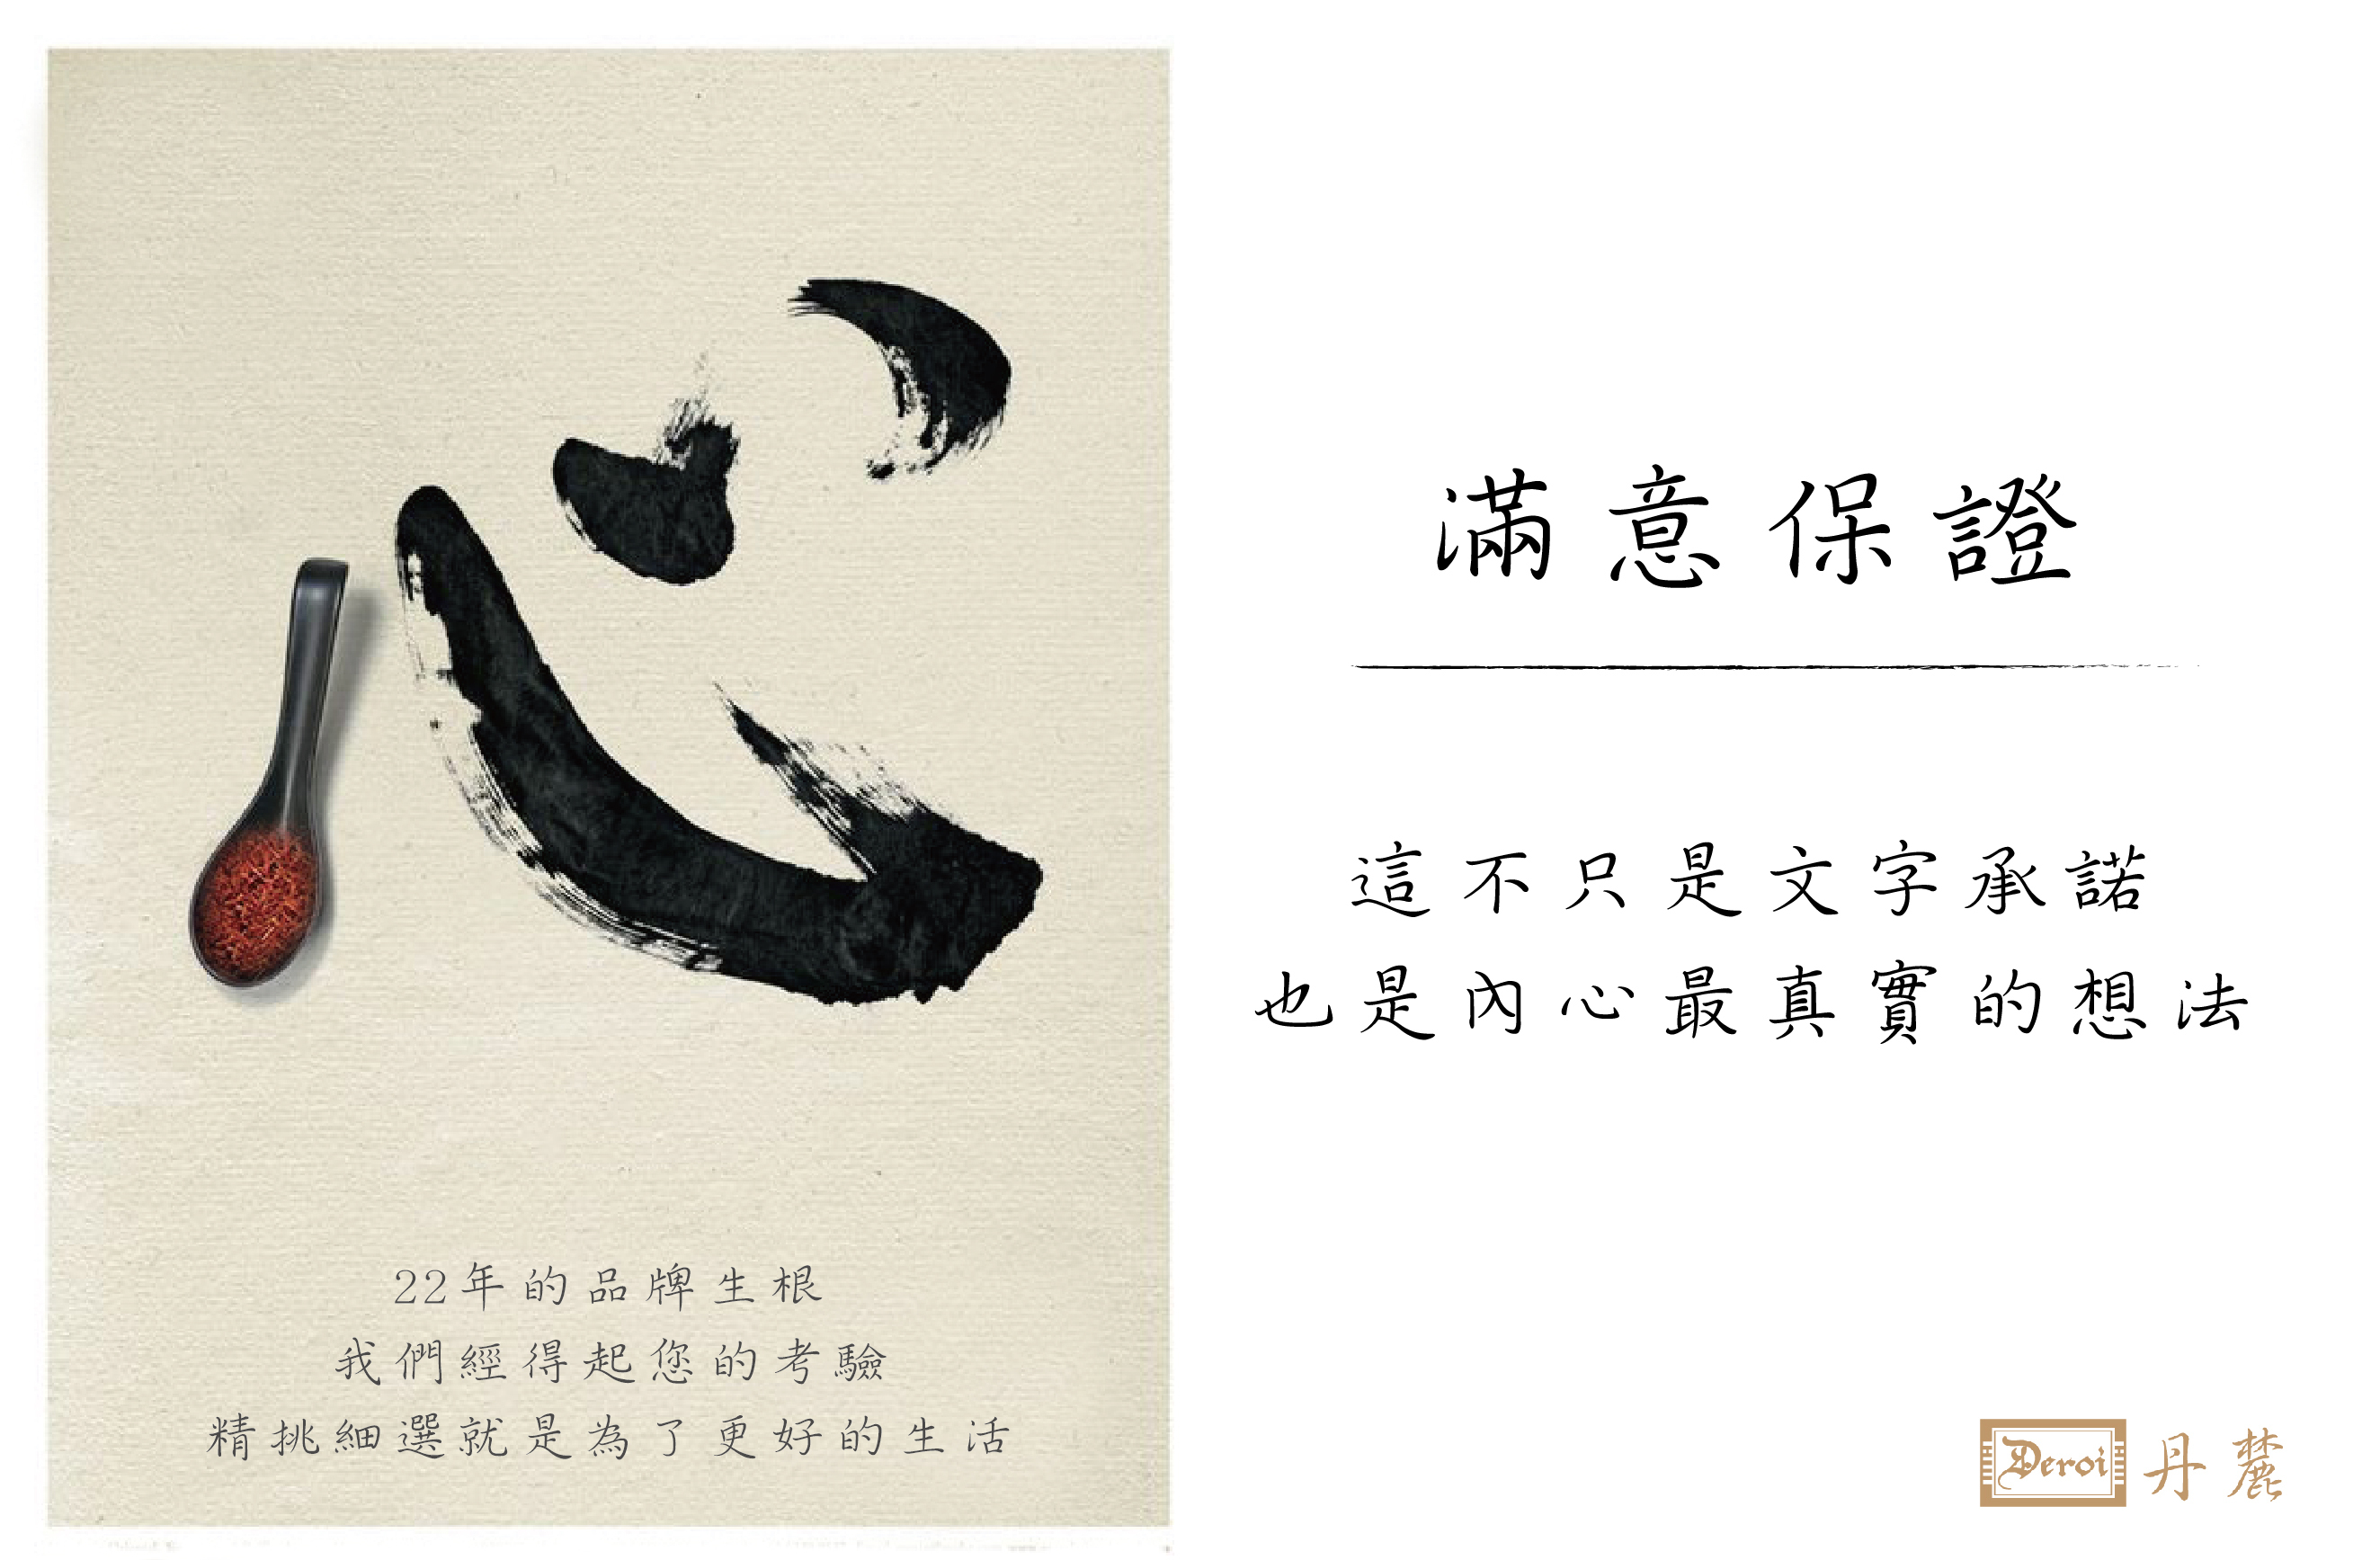 心
22年的品牌生根
我們經得起您的考驗
精挑細選就是為了更好的生活
滿意保證
這不只是文字承諾
也是內心最真實的想法
Deroi 丹麓